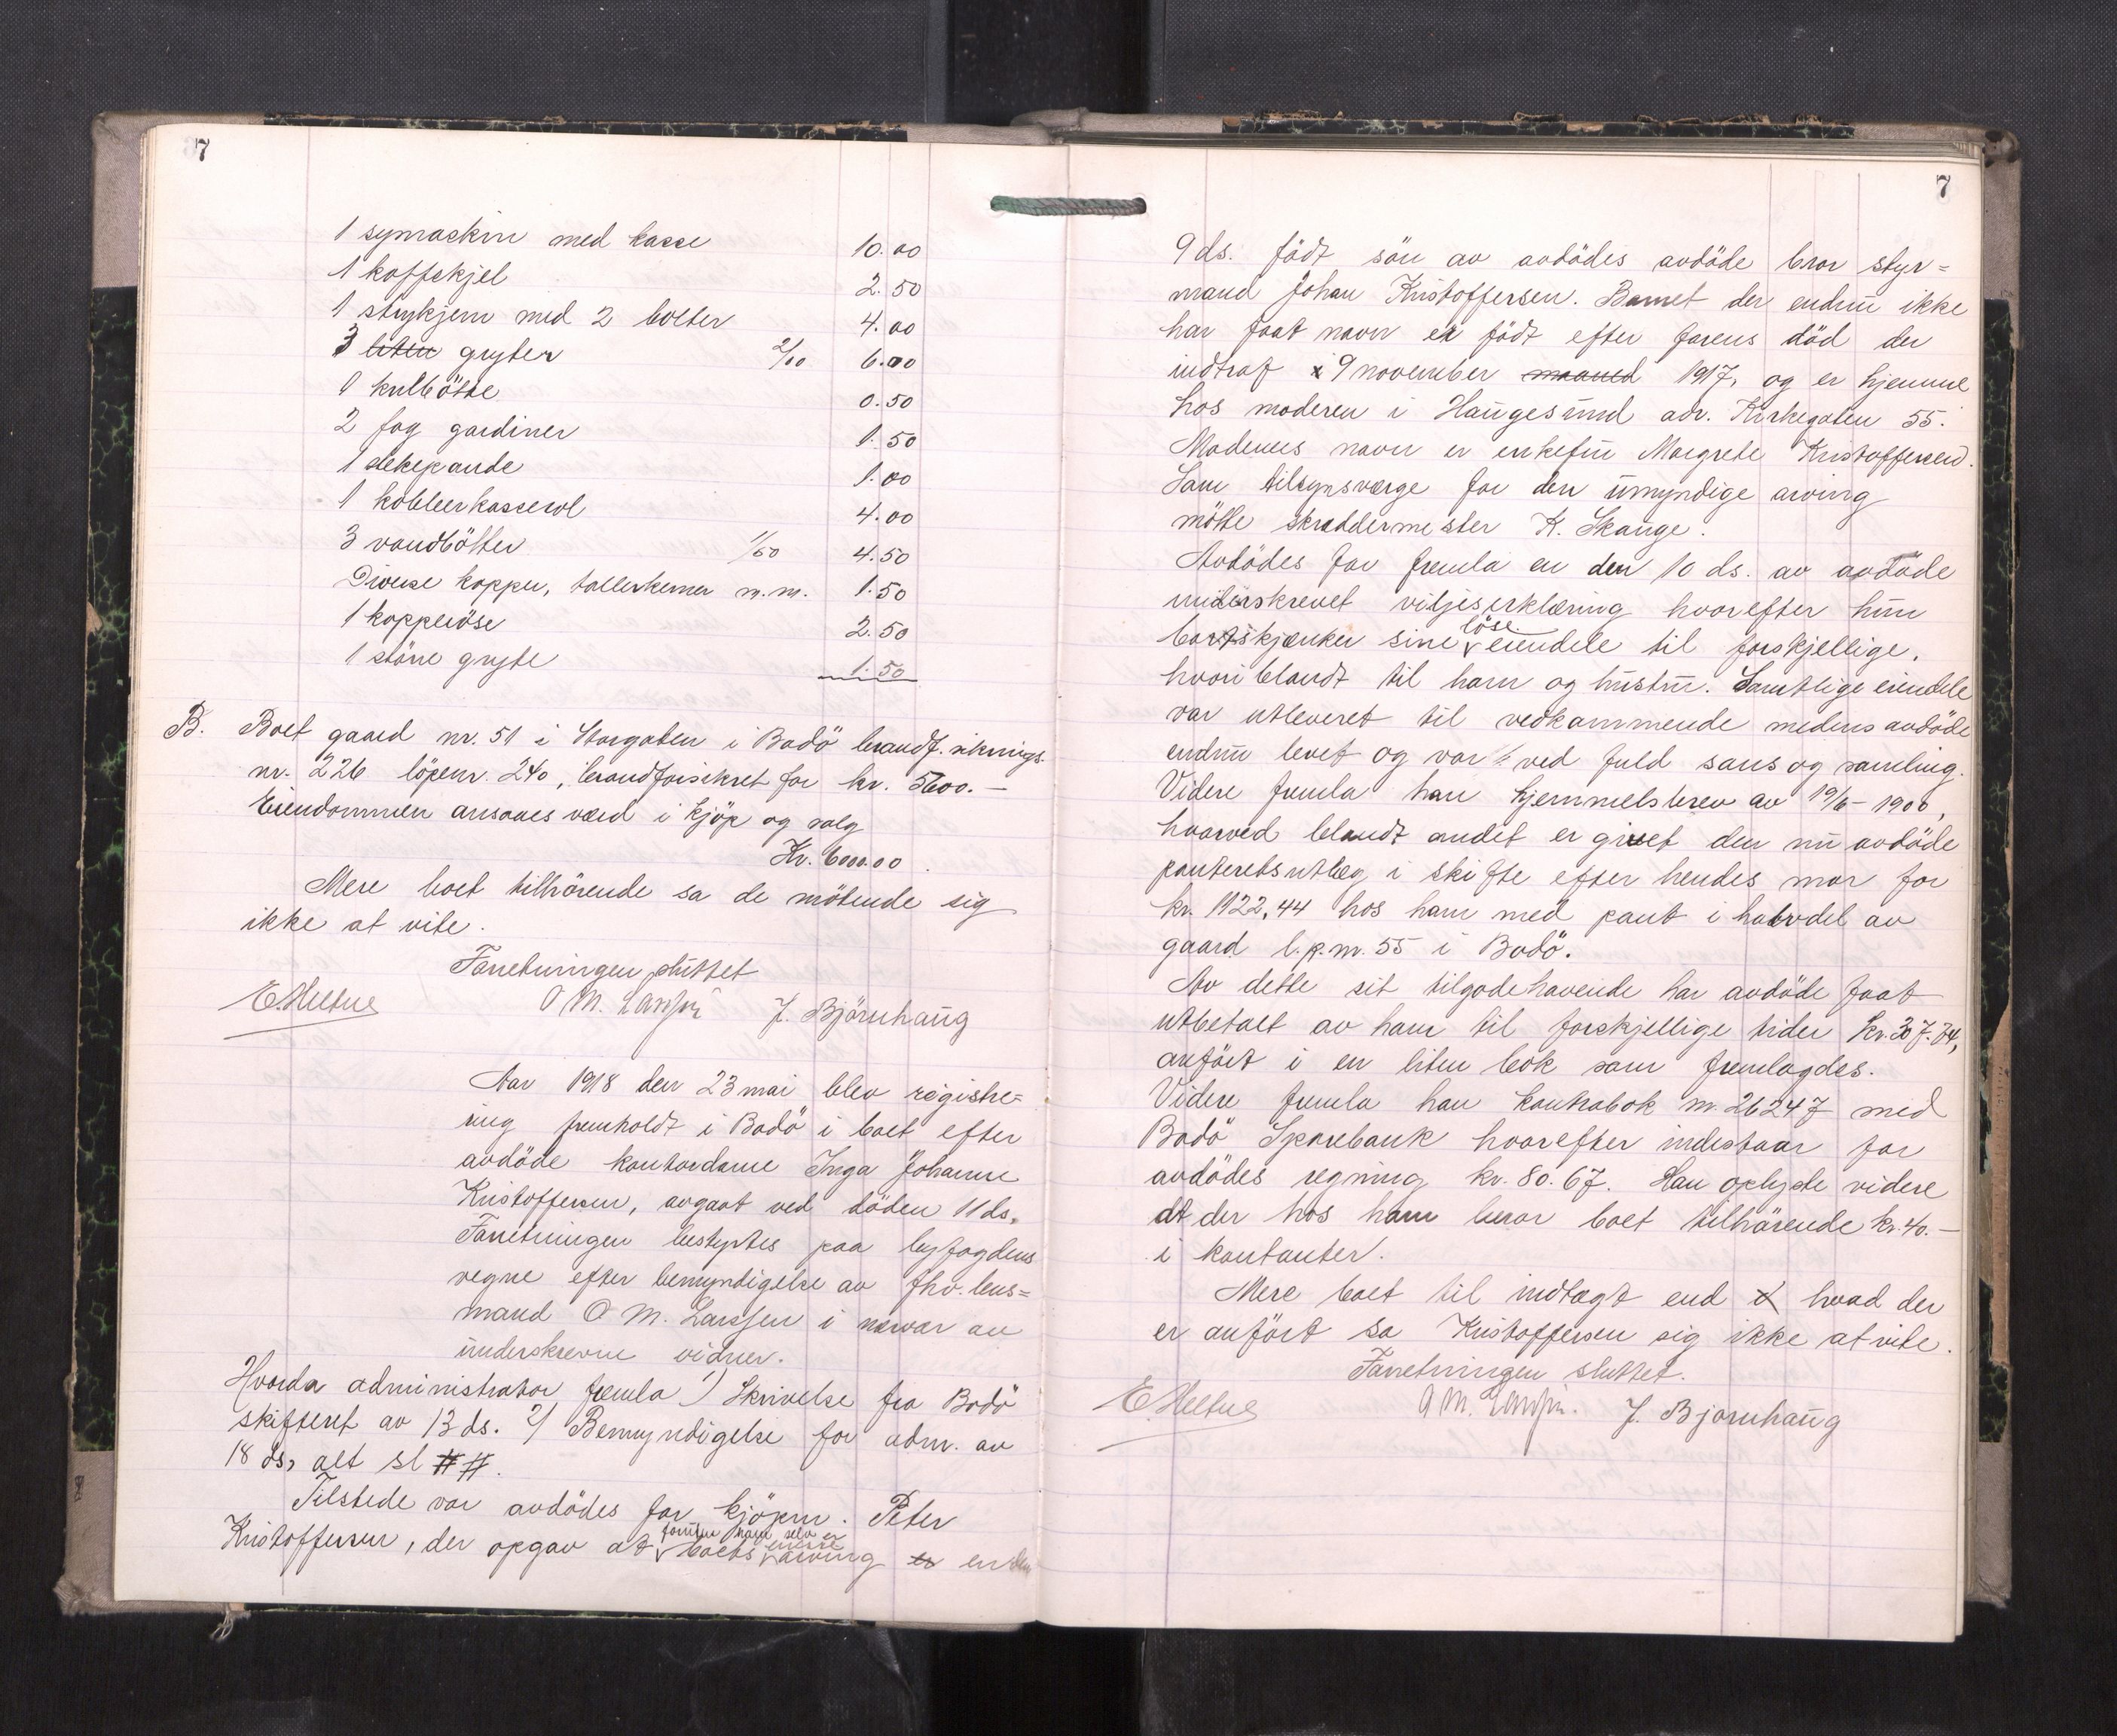 7
1 symaskin med kasse 10.00
1 kaffekjel 2.50
1 strykjern med 2 bolter 4.00
3 liten gryter 2/00 6.00
1 kulbötte 0.50
2 fag gardiner 1.50
1 stekepande 1.00
1 kobberkasserol 4.00
3 vandbötter 1/50 4.50
Diverse kopper, tallerkener m.m. 1.50
1 kopperöse 2.50
1 större gryte 1.50
B. Boet gaard nr. 51 i Storgaten i Bodö brandf.sikrings
nr. 226 löpenr. 240, brandforsikret for kr. 5600.-
Eiendommen ansaaes værd i kjöp og salg
Kr. 6000.00.
Mere boet tilhörende sa de mötende sig
ikke at vite.
Forretningen sluttet
E. Heltne O M. Larssen J. Björnhaug
Aar 1918 den 23 mai blev registre=
ring fremholdt i Bodö i boet efter
avdöde kontordame Inga Johanne
Kristoffersen, avgaat ved döden 11 ds.
Forretningen bestyrtes paa byfogdens
vegne efter bemyndigelse av fhv. lens=
mand O M. Larssen i nærvær av
underskrevne vidner.
Hvorda administrator fremla 1) Skrivelse fra Bodö
skifteret av 13 ds. 2) Bemyndigelse for adm. av
18 ds, alt sl # #.
Tilstede var avdödes far kjöpm. Peter
foruten ham selv er eneste
Kristoffersen, der opgav at boets arving er en den
7
9 ds. födt sön av avdödes avdöde bror styr=
mand Johan Kristoffersen. Barnet der endnu ikke
har faat navn er födt efter farens död der
indtraf i 9 november maaned 1917, og er hjemme
hos moderen i Haugesund adr. Kirkegaten 55.
Moderens navn er enkefru Margrete Kristoffersen.
Som tilsynsværge for den umyndige arving
mötte skræddermester K. Skauge.
Avdödes far fremla en den 10 ds. av avdöde
underskrevet viljeserklæring hvorefter hun
löse
bortskjænker sine eiendele til forskjellige,
hvoriblandt til ham og hustru. Samtlige eiendele
var utleveret til vedkommende medens avdöde
endnu levet og var ved fuld sans og samling.
Videre fremla han hjemmelsbrev av 19/6-1900,
hvorved blandt andet er givet den nu avdöde
panteretsutlæg i skifte efter hendes mor for
kr. 1922,44 hos ham med pant i halvdel av
gaard l.p.nr. 55 i Bodö.
Av dette sit tilgodehavende har avdöde faat
utbetalt av ham til forskjellige tider kr. 307.34,
anfört i en liten bok som fremlagdes.
Videre fremla han kontrabok nr. 26247 med
Bodö Sparebank hvorefter indestaar for
avdödes regning kr. 80.67. Han oplyste videre
at der hos ham beror boet tilhörende kr. 40.-
i kontanter.
Mere boet til indtægt end hvad der
er anfört sa Kristoffersen sig ikke at vite.
Forretningen sluttet.
E. Heltne O M. Larssen. J. Bjornhaug